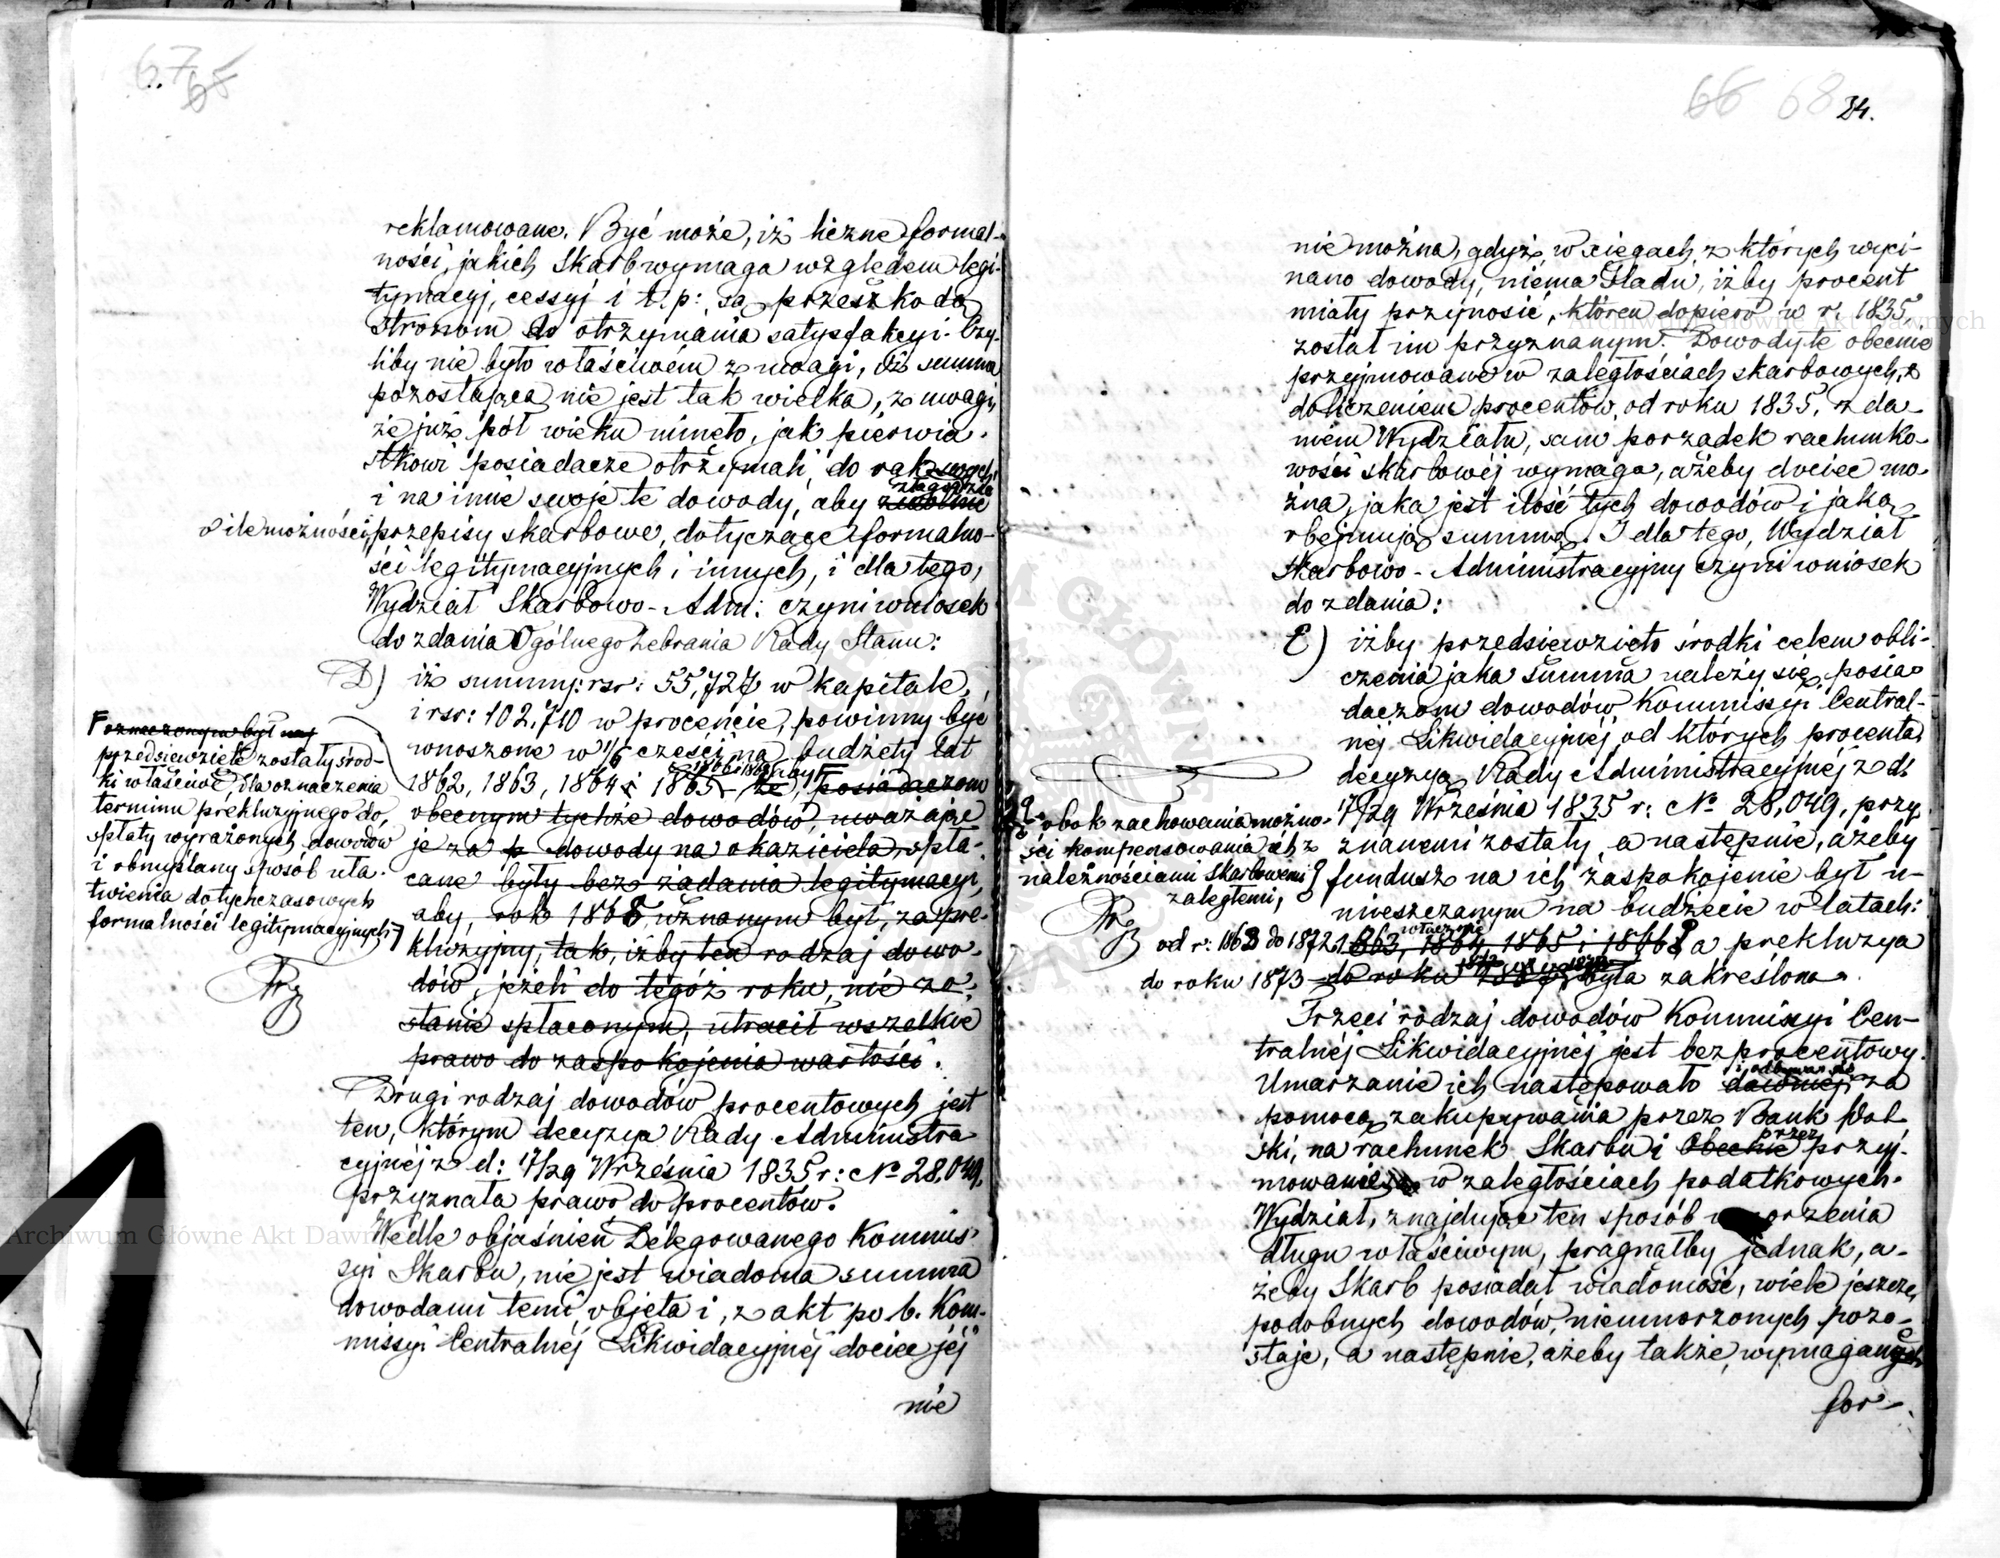 67
65
reklamowane. Być może, iż liczne formal-
ności, jakich Skarb wymaga względem legi-
tymacyj, cessyj i t. p: są przeszkodą
Stronom do otrzymania satysfakcyi. Czy-
liby nie było właściwém z uwagi, iż summa
pozostająca nie jest tak wielka, z uwagi,
że już pół wieku minęło, jak pierwia-
stkowi posiadacze otrzymali do rąk swych
i na imie swoje te dowody, aby złagodzić
o ile możności, przepisy skarbowe, dotyczące formalno-
ści legitymacyjnych i innych, i dla tego,
Wydział Skarbowo-Adm: czyni wniosek
do zdania Ogólnego Zebrania Rady Stanu:
D) iż summy: rsr: 55,727 w kapitale,
i rsr: 102,710 w procencie, powinny być
wnoszone w 1/6 części na budżety lat
1862, 1863, 1864 i 1865 1866 i 1867 że, by F posiadaczom
obecnym tychże dowodów, uważając
je za dowody na okaziciela, spła-
cane były bez żądania legitymacyi,
aby, rok 1868 uznanym był, za pre-
kluzyjny, tak, iżby ten rodzaj dowo-
dów, jeżeli do tegóż roku, nie zo-
stanie spłaconym, utracił wszelkie
prawo do zaspokojenia wartości.
F oznaczonym był
przedsięwzięte zostały środ-
ki właściwe, dla oznaczenia
terminu prekluzyjnego do
spłaty wyrażonych dowodów
i obmyślany sposób uła-
twienia dotychczasowych
formalności legitymacyjnych
Drugi rodzaj dowodów procentowych jest
ten, którym decyzya Rady Administra
cyjnéj z d: 17/29 Września 1835 r: No 28,049,
przyznała prawo do procentów.
Wedle objaśnień Delegowanego Kommis-
syi Skarbu, nie jest wiadoma summa
dowodami temi objęta i, z akt po b. Kom-
missyi Centralnéj Likwidacyjnéj dociec jéj
nie
66 68 24.
nie można, gdyż w xięgach, z których wyci-
nano dowody, niema śladu, iżby procent
miały przynosić, któren dopiero w r. 1835,
został im przyznanym. Dowody te obecnie
przyjmowane w zaległościach skarbowych, z
doliczeniem procentów, od roku 1835, zda-
niem Wydziału, sam porządek rachunko-
wości skarbowéj wymaga, ażeby dociec mo-
żna, jaka jest ilość tych dowodów i jaką
obejmują summę. I dla tego, Wydział
Skarbowo-Administracyjny czyni wniosek
do zdania:
E) iżby przedsięwzięto środki celem obli-
czenia jaka summa należy się posia-
daczom dowodów Kommissyi Central-
néj Likwidacyjnéj, od których procenta,
decyzyą Rady Administracyjnéj z d:
17/29 Września 1835 r: No 28,049, przy-
znanemi zostały, a następnie, ażeby
obok zachowania możno-
ści kompensowania ich z
należnościami Skarbowemi
zaległemi,
fundusz na ich zaspokojenie był u-
mieszczanym na budżecie w latach:
od r: 1863 do 1872 włącznie 1863, 1864, 1865 i 1866 a prekluzya
do roku 1873 do roku była zakreślona.
Trzeci rodzaj dowodów Kommissyi Cen-
tralnéj Likwidacyjnéj jest bezprocentowy.
Umarzanie ich następowało i odbywa się dawniéj za
pomocą zakupywania przez Bank Pol-
ski, na rachunek Skarbu i przez obecnie przyj-
mowanie w zaległościach podatkowych.
Wydział, znajdując ten sposób umorzenia
długu właściwym, pragnąłby jednak, a-
żeby Skarb posiadał wiadomość, wiele jeszcze
podobnych dowodów, nieumorzonych pozo-
staje, a następnie, ażeby także, wymagane
for-
Archiwum Główne Akt Dawnych
Archiwum Główne Akt Dawnych